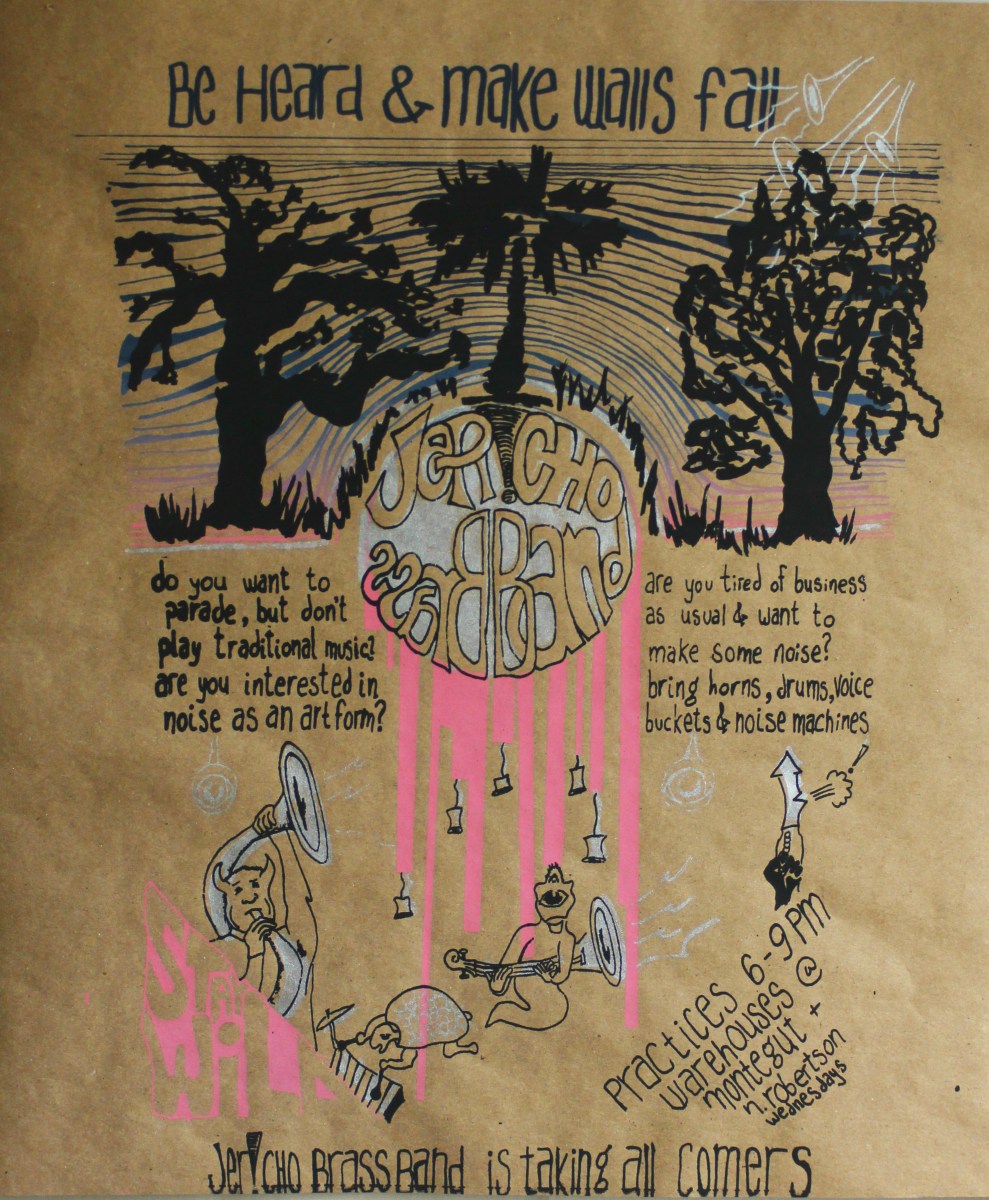 Be Heard & make walls fall
Jer!cho
Brass Band
do you want to
parade, but don't
play traditional music?
are you interested in
noise as an art form?
are you tired of business
as usual & want to
make some noise?
bring horns, drums, voice
buckets & noise machines
Stay
Wild
Practices 6-9 PM
warehouses @
montegut +
n. robertson
wednesdays
Jer!cho Brass Band is taking all comers